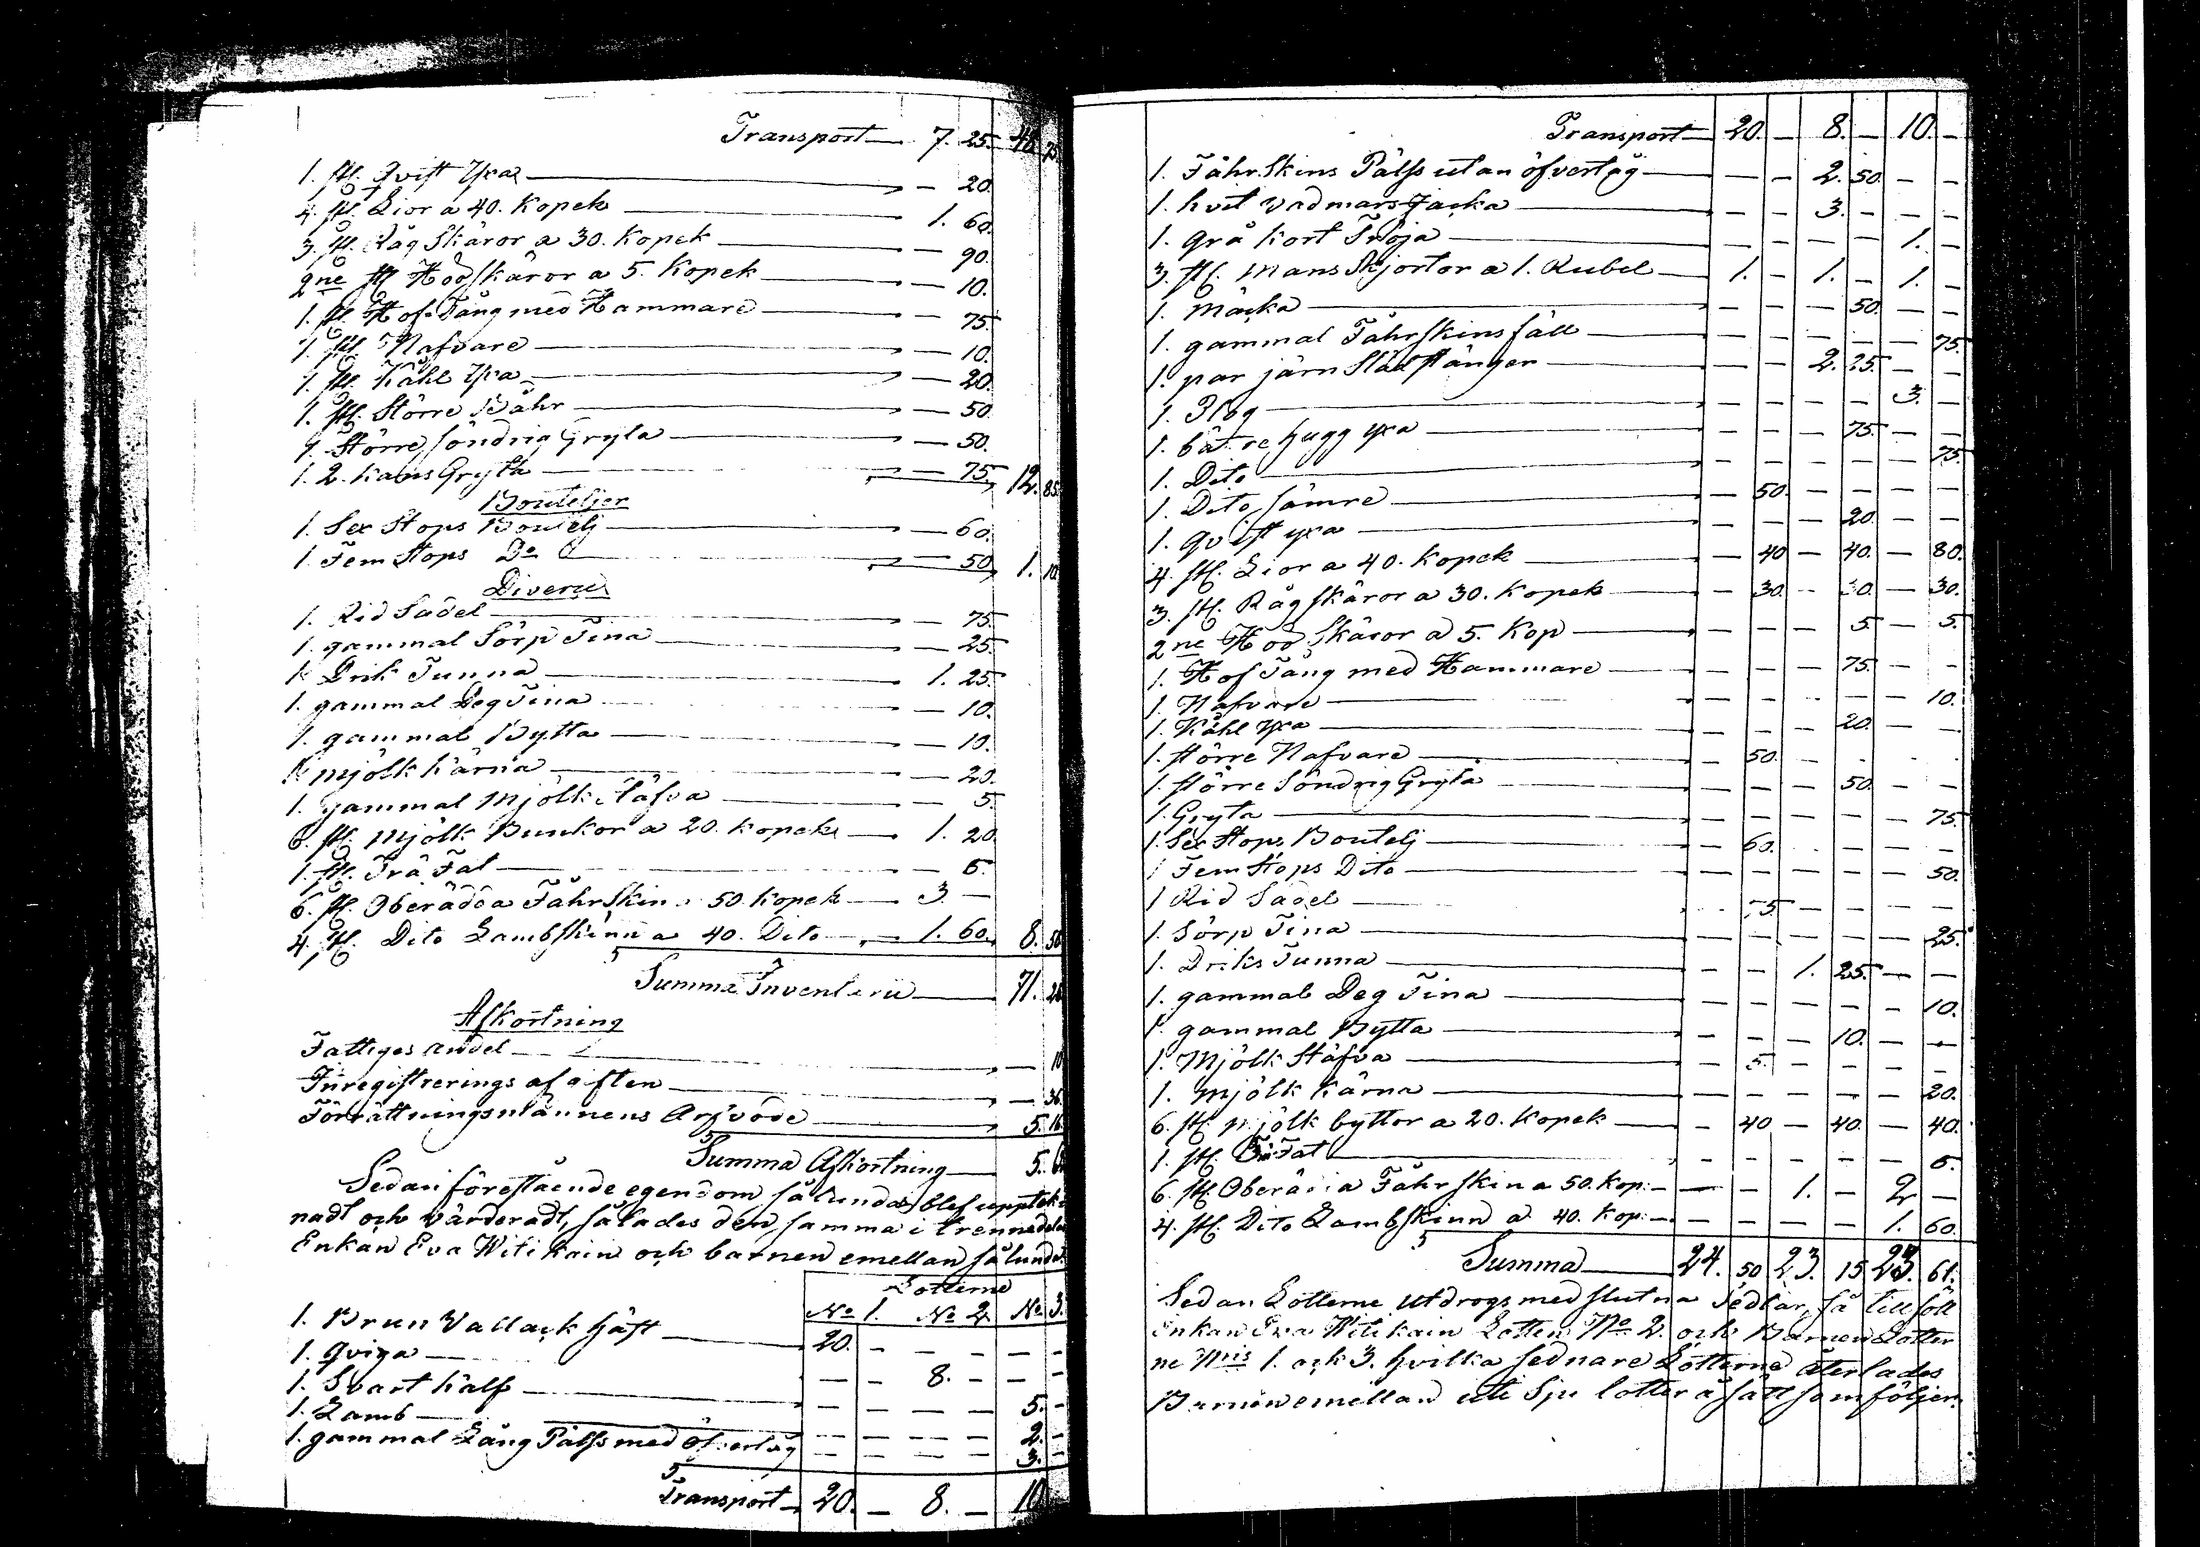 Transport — 7. 25. 48. 75
1. st. Qvist Yxa — — 20.
4. st. Lior a 40. Kopek — 1. 60.
3. st. Råg Skäror a 30. Kopek — — 90.
2ne st Hod skäror a 5. Kopek — — 10.
1. st Hof Tång med Hammare — — 75.
1. st. Nafvare — — 10.
1. st. Kåhl Yxa — — 20.
1. st. Större Båhr — — 50.
1. Större söndrig Gryta — — 50.
1. 2. Kans Gryta — — 75. 12. 85.
Bouteljer
1. Sex Stops Boutelj — — 60.
1. Fem Stops Do — — 50. 1. 10.
Diverse
1. Rid Sadel — — 75.
1. gammal Sörp Tina — — 25.
1. Drik Tunna — 1. 25.
1. gammal Deg Tina — — 10.
1. gammal Bytta — — 10.
1. mjölk Kärna — — 20.
1. gammal Mjölk Stäfva — — 5.
6. st. Mjölk Bunkor a 20. kopek — 1. 20.
1. st. Trä Fat — — 5.
6. st. Oberädda Fåhrskin a 50. Kopek — 3. —
4. st. Dito Lambskinn a 40. Dito — 1. 60. 8. 50
Summa Inventarii — 71. 20
Afkortning
Fattiges andel — — 10
Inregistrerings afgiften — — 36.
Förrättningsmännens Arfvode — 5. 16.
Summa Afkortning — 5.
Sedan förestående egendom sålunda blef upptek-
nadt och värderadt, så lades den samma i trenne delar
Enkan Eva Witikain och barnen emellan sålunda.
Lotterne
No 1. No 2. No 3.
1. Brun Vallack häst — 20. — — — — —
1. Qviga — — — 8. — — —
1. Svart Kalf — — — — — 5. —
1. Lamb — — — — — 2. —
1. gammal Lång Pälss med Öfverlag — — — — 3. —
Transport — 20. — 8. — 10
Transport — 20. — 8. — 10. —
1. Fåhrskins Pälss utan öfverlag — — — 2. 50. — —
1. hvit vadmars Jacka — — — 3. — — —
1. grå kort Tröja — — — — — 1. —
3. st. Mans Skjortor a 1. Rubel — 1. — 1. — 1. —
1. Mäcka — — — — 50. — —
1. gammal Fåhrskinsfäll — — — — — — 75.
1. par järn Städ stänger — — — 2. 25. — —
1. Plog — — — — — 3. —
1. bätre hugg yxa — — — — 75. — —
1. Dito — — — — — — 75.
1. Dito sämre — — 50. — — — —
1. Qvist yxa — — — — 20. — —
4. st. Lior a 40. Kopek — — 40 — 40. — 80.
3. st. Råg skäror a 30. Kopek — — 30. — 30. — 30.
2ne Hod Skäror a 5. Kop — — — — 5. — 5.
1. Hof Tång med Hammare — — — — 75. — —
1. Nafvare — — — — — — 10.
1. Kåhl yxa — — — — 20. — —
1. större Nafvare — — 50. — — — —
1. större Söndrig Gryta — — — — 50. — —
1. Gryta — — — — — — 75.
1. Sex Stops Boutelj — — 60. — — — —
1 Fem Stops Dito — — — — — — 50.
1 Rid Sadel — — 75. — — — —
1. Sörp Tina — — — — — — 25.
1. Driks Tunna — — — 1. 25. — —
1. gammal Deg Tina — — — — — — 10.
1. gammal Bytta — — — — 10. — —
1. Mjölk Stäfva — — 5. — — — —
1. mjölk Kärna — — — — — — 20.
6. st. mjölk byttor a 20. Kopek — — 40 — 40. — 40.
1. st. Trä Fat — — — — — — 5.
6 st. Oberädda Fåhrskin a 50. Kop. — — — 1. — 2 —
4. st. Dito Lambskinn a 40. Kop. — — — — — 1. 60.
Summa — 24. 50 23. 15 23. 61.
Sedan Lotterne utdrogs med slutna Sedlar, så tillföll
Enkan Eva Witikain Lotten No 2. och Barnen Lotter
ne Nris 1. och 3. hvilka sednare Lotterne återlades
Barnen emellan uti Sju lotter å sätt som följer.